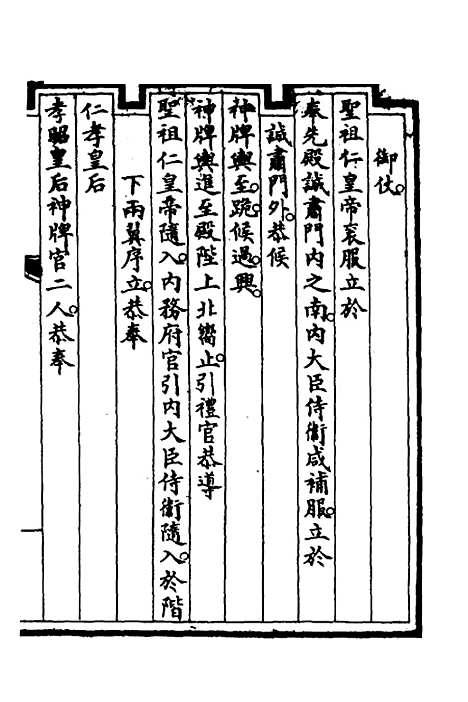 御仗。
聖祖仁皇帝衮服立於
奉先殿誠肅門内之南。内大臣侍衞咸補服。立於
誠肅門外。恭候
神牌輿至。跪。候過。興。
神牌輿進至殿陛上北嚮止。引禮官恭導
聖祖仁皇帝隨入。内務府官引内大臣侍衞隨入。於階
下兩翼序立。恭奉
仁孝皇后
孝昭皇后神牌官二人。恭奉